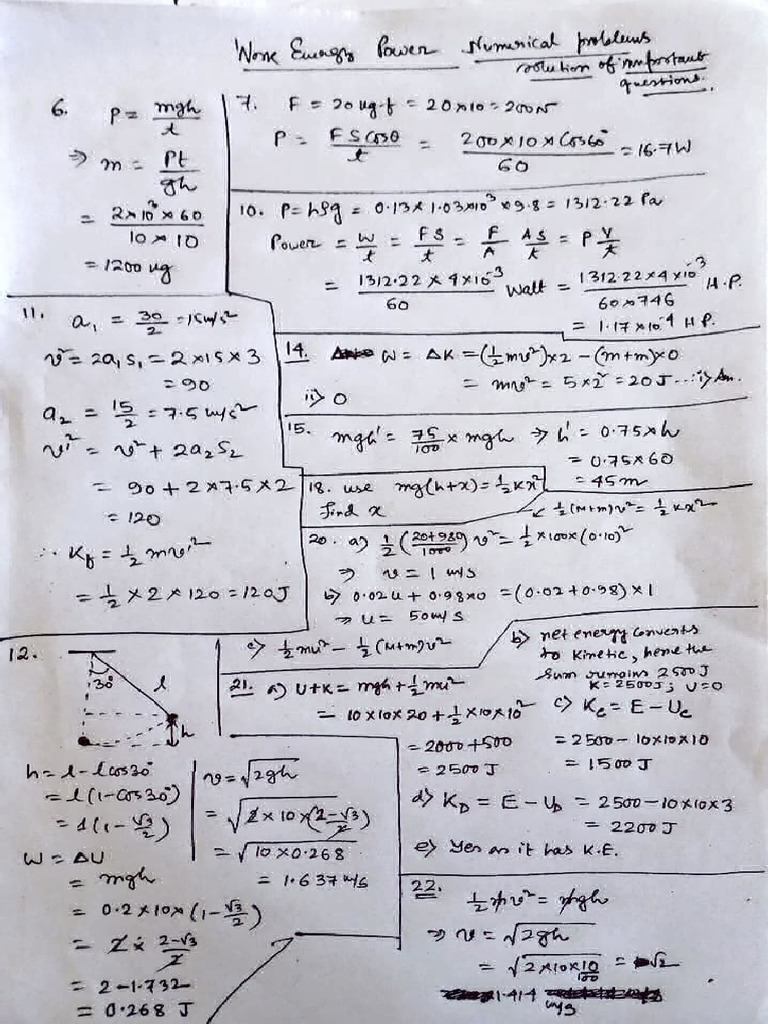 Work Energy Power Numerical problems
solution of important
questions.
6. P = mgh/t
⇒ m = Pt/gh
= 2×10³×60/10×10
= 1200 kg
7. F = 20 kg-f = 20×10 = 200N
P = FScosθ/t = 200×10×Cos60°/60 = 16.7W
10. P = hρg = 0.13×1.03×10³×9.8 = 1312.22 Pa
Power = W/t = FS/t = F/A AS/t = P V/t
= 1312.22×4×10⁻³/60 Watt = 1312.22×4×10⁻³/60×746 H.P.
= 1.17×10⁻⁴ H.P.
11. a₁ = 30/2 = 15m/s²
v² = 2a₁s₁ = 2×15×3
= 90
a₂ = 15/2 = 7.5 m/s²
v'² = v² + 2a₂S₂
= 90 + 2×7.5×2
= 120
∴ Kf = ½mv'²
= ½ × 2 × 120 = 120J
14. W = ΔK = (½mv²)×2 − (m+m)×0
= mv² = 5×2² = 20J ... i) An.
ii) 0
15. mgh' = 75/100 × mgh ⇒ h' = 0.75×h
= 0.75×60
= 45m
18. use mg(h+x) = ½Kx²
find x
½(M+m)v² = ½Kx²
20. a) ½(20+980/1000)v² = ½×100×(0.10)²
⇒ v = 1 m/s
b) 0.02u + 0.98×0 = (0.02+0.98)×1
⇒ u = 50m/s
c) ½mu² − ½(M+m)v²
12. 30° l h
h = l − lcos30°
= l(1−cos30°)
= 1(1−√3/2)
W = ΔU
= mgh
= 0.2×10×(1−√3/2)
= 2 × 2−√3/2
= 2−1.732
= 0.268 J
v = √2gh
= √2×10×(2−√3)/2
= √10×0.268
= 1.637m/s
21. a) U+K = mgh + ½mu²
= 10×10×20 + ½×10×10²
= 2000+500
= 2500 J
b) net energy converts
to Kinetic, hence the
sum remains 2500J
K = 2500J; U=0
c) Kc = E − Uc
= 2500 − 10×10×10
= 1500 J
d) KD = E − UD = 2500 − 10×10×3
= 2200 J
e) Yes as it has K.E.
22. ½mv² = mgh
⇒ v = √2gh
= √2×10×10/100 = √2
1.414 m/s